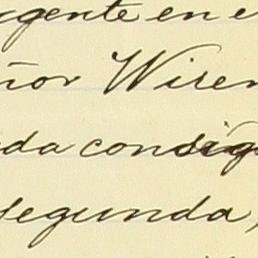 gente en e
ñor Wisen
da consig
segunda,